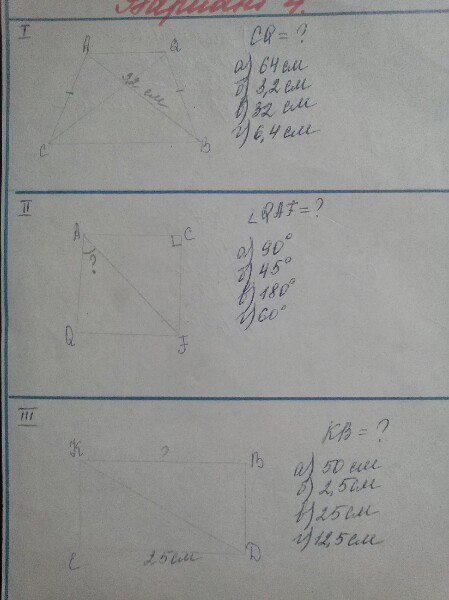 Вариант 4.
I
A Q
CQ = ?
32 см
а) 64 см
б) 3,2 см
в) 32 см
г) 6,4 см
C B
II
∠QAF = ?
A C
?
а) 90°
б) 45°
в) 180°
г) 60°
Q F
III
KB = ?
K ? B
а) 50 см
б) 2,5 см
в) 25 см
г) 12,5 см
E 25 см D